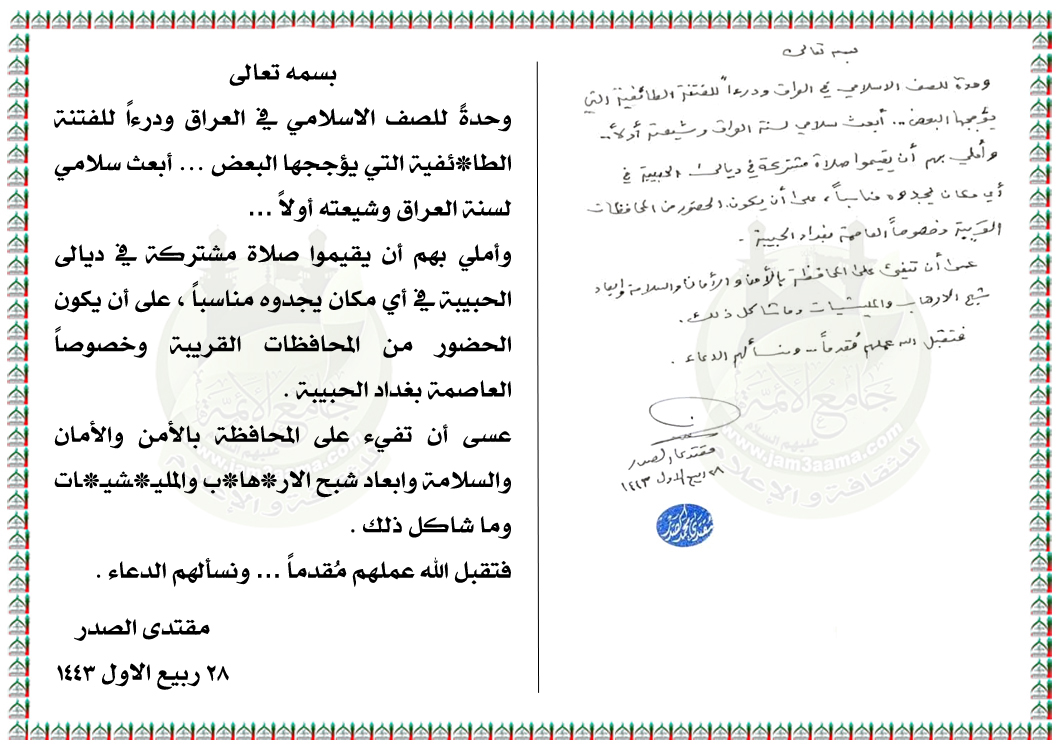 بسمه تعالى
وحدةً للصف الاسلامي في العراق ودرءاً للفتنة
الطا*ئفية التي يؤججها البعض ... أبعث سلامي
لسنة العراق وشيعته أولاً ...
وأملي بهم أن يقيموا صلاة مشتركة في ديالى
الحبيبة في أي مكان يجدوه مناسباً ، على أن يكون
الحضور من المحافظات القريبة وخصوصاً
العاصمة بغداد الحبيبة .
عسى أن تفيء على المحافظة بالأمن والأمان
والسلامة وابعاد شبح الار*ها*ب والملي*شيـ*ـات
وما شاكل ذلك .
فتقبل الله عملهم مُقدماً ... ونسألهم الدعاء .
مقتدى الصدر
٢٨ ربيع الاول ١٤٤٣
بسمه تعالى
وحدة للصف الاسلامي في العراق ودرءاً للفتنة الطائفية التي
يؤججها البعض... أبعث سلامي لسنة العراق وشيعته أولاً..
وأملي بهم أن يقيموا صلاة مشتركة في ديالى الحبيبة في
أي مكان يجدوه مناسباً ، على أن يكون الحضور من المحافظات
القريبة وخصوصاً العاصمة بغداد الحبيبة .
عسى أن تفيء على المحافظة بالأمن والأمان والسلامة وابعاد
شبح الارهاب والمليشيات وما شاكل ذلك .
فتقبل الله عملهم مُقدماً .. ونسألهم الدعاء .
مقتدى الصدر
٢٨ ربيع الاول ١٤٤٣
جامع الأئمة
عليهم السلام
www.jam3aama.com
للثقافة و الإعلام